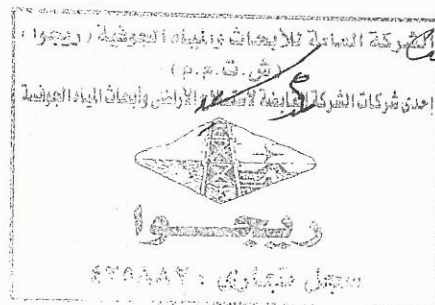 الشركة العامة للأبحاث والمياه الجوفية (ريجوا)
(ش.ت.م.م)
إحدى شركات الشركة القابضة لاستصلاح الأراضى وأبحاث المياه الجوفية
ريجوا
سجل تجارى :